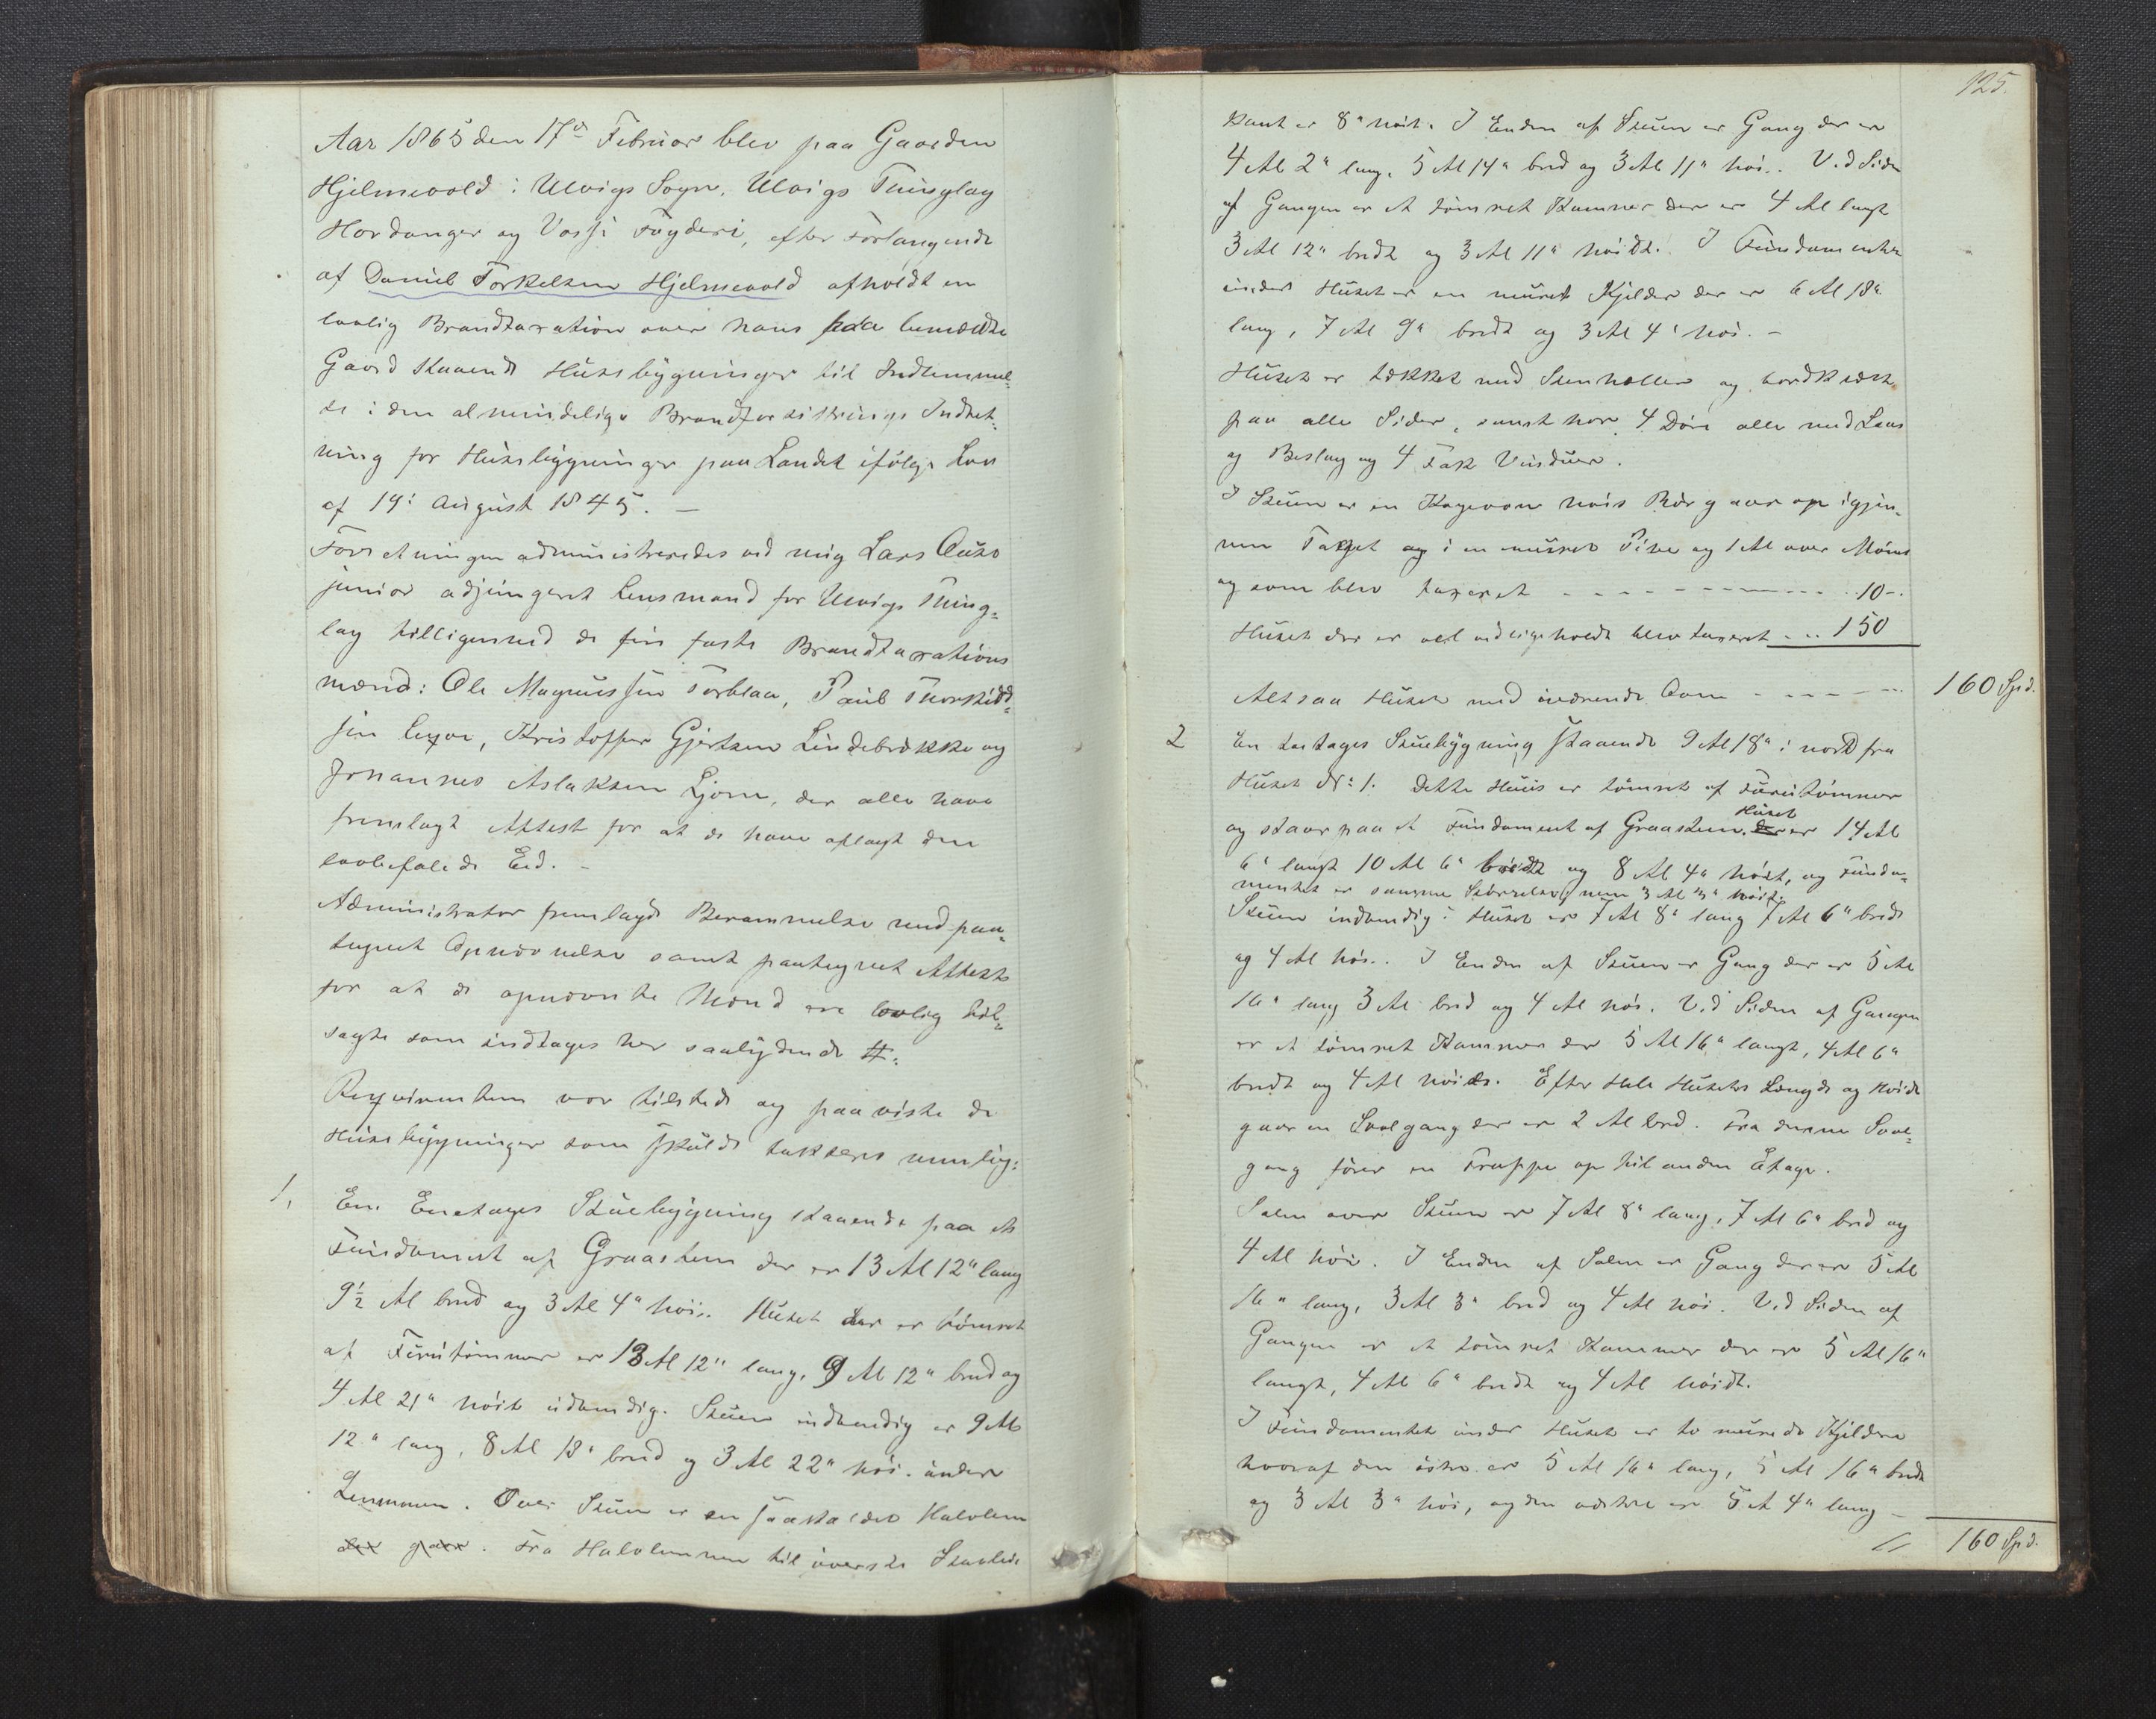 Aar 1865 den 17d Februar blev paa Gaarden
Hjelmevold i Ulvigs Sogn, Ulvigs Thinglag
Hardanger og Vossi Fogderi, efter Forlangende
af Daniel Torkelsen Hjelmevold afholdt en
lovlig Brandtaxation over hans paa bemeldte
Gaard staaende Huusbygninger til Indlemmel-
se i den almindelige Brandforsikrings Indret-
ning for Huusbygninger paa Landet ifølge Lov
af 19: August 1845. —
Forretningen administreredes ved mig Lars
junior adjungeret Lensmand for Ulvigs Thing-
lag tilligemed de fire faste Brandtaxations
mænd: Ole Magnussen Torblaa, Paul Thorkilds-
sen Legre, Kristoffer Gjertsen Lindebrække og
Johannes Aslaksen Ljone, der alle have
fremlagt Attest for at de have aflagt den
lovbefalede Eed. —
Administrator fremlagde Berammelse med paa-
tegnet Opnævnelse samt paategnet Attest
for at de opnævnte Mænd ere lovlig til-
sagte som indtages her saalydende #:
Reqvirenten var tilstede og paaviste de
Huusbygninger som skulde takseres nemlig:
1, En Enetages Stuebygning staaende paa et
Fundament af Graasteen der er 13 Al 12" lang
9½ Al bred og 3 Al 4" høi. Huset der er tømret
af Furutømmer er 13 Al 12" lang, 9 Al 12" bred og
4 Al 21" høit udvendig. Stuen indvendig er 9 Al
12" lang, 8 Al 18" bred og 3 Al 22" høi under
Lemmen. Over Stuen er en saakaldet Halvlem
der gaar. Fra Halvlemmen til øverste
125.
kant er 8" høit. I Enden af Stuen er Gang der er
4 Al 2" lang, 5 Al 14" bred og 3 Al 11" høi. Ved Siden
af Gangen er et tømret Kammer der er 4 Al langt
3 Al 12" bredt og 3 Al 11" høidt. I Fundamentet
under Huset er en muret Kjelder der er 6 Al 18"
lang, 7 Al 9" bredt og 3 Al 4" høi. —
Huset er tækket med Steenheller og bordklædt
paa alle Sider, samt har 4 Døre alle med Laas
og Beslag og 4 Fag Vinduer.
I Stuen er en Kogeovn hvis Rør gaar op igjen-
nem Taget og i en muret Pibe og 1 Al over Mønet
og som blev taxeret - - - - - - - - - 10-.
Huset der er vel vedligeholdt blev taxeret - - - 150
Altsaa Huset med værende Ovn - - - - - 160 Spd.
2 En toetages Stuebygning staaende 9 Al 18" i nord fra
Huset N: 1. Dette Huus er tømret af Furutømmer
og staar paa et Fundament af Graasteen. der Huset er 14 Al
6" langt 10 Al 6" bredt og 8 Al 4" høit, og Funda-
mentet er samme Størrelse, men 3 Al 3" høit.
Stuen indvendig i Huset er 7 Al 8" lang 7 Al 6" bred
og 4 Al høi. I Enden af Stuen er Gang der er 5 Al
16" lang 3 Al bred og 4 Al høi. Ved Siden af Gangen
er et tømret Kammer der 5 Al 16" langt, 4 Al 6"
bredt og 4 Al høidt. Efter Hele Husets Længde og Høide
gaar en Svalgang der er 2 Al bred. Fra denne Sval-
gang fører en Trappe op til anden Etage.
Salen over Stuen er 7 Al 8" lang, 7 Al 6" bred og
4 Al høi. I Enden af Salen er Gang der er 5 Al
16" lang, 3 Al 3" bred og 4 Al høi. Ved Siden af
Gangen er et tømret Kammer der er 5 Al 16"
langt, 4 Al 6" bredt og 4 Al høidt.
I Fundamentet under Huset er to murede Kjeldere
hvoraf den østre er 5 Al 16" lang, 5 Al 16" bredt
og 3 Al 3" høi, og den vestre er 5 Al 4" lang —
160 Spd.